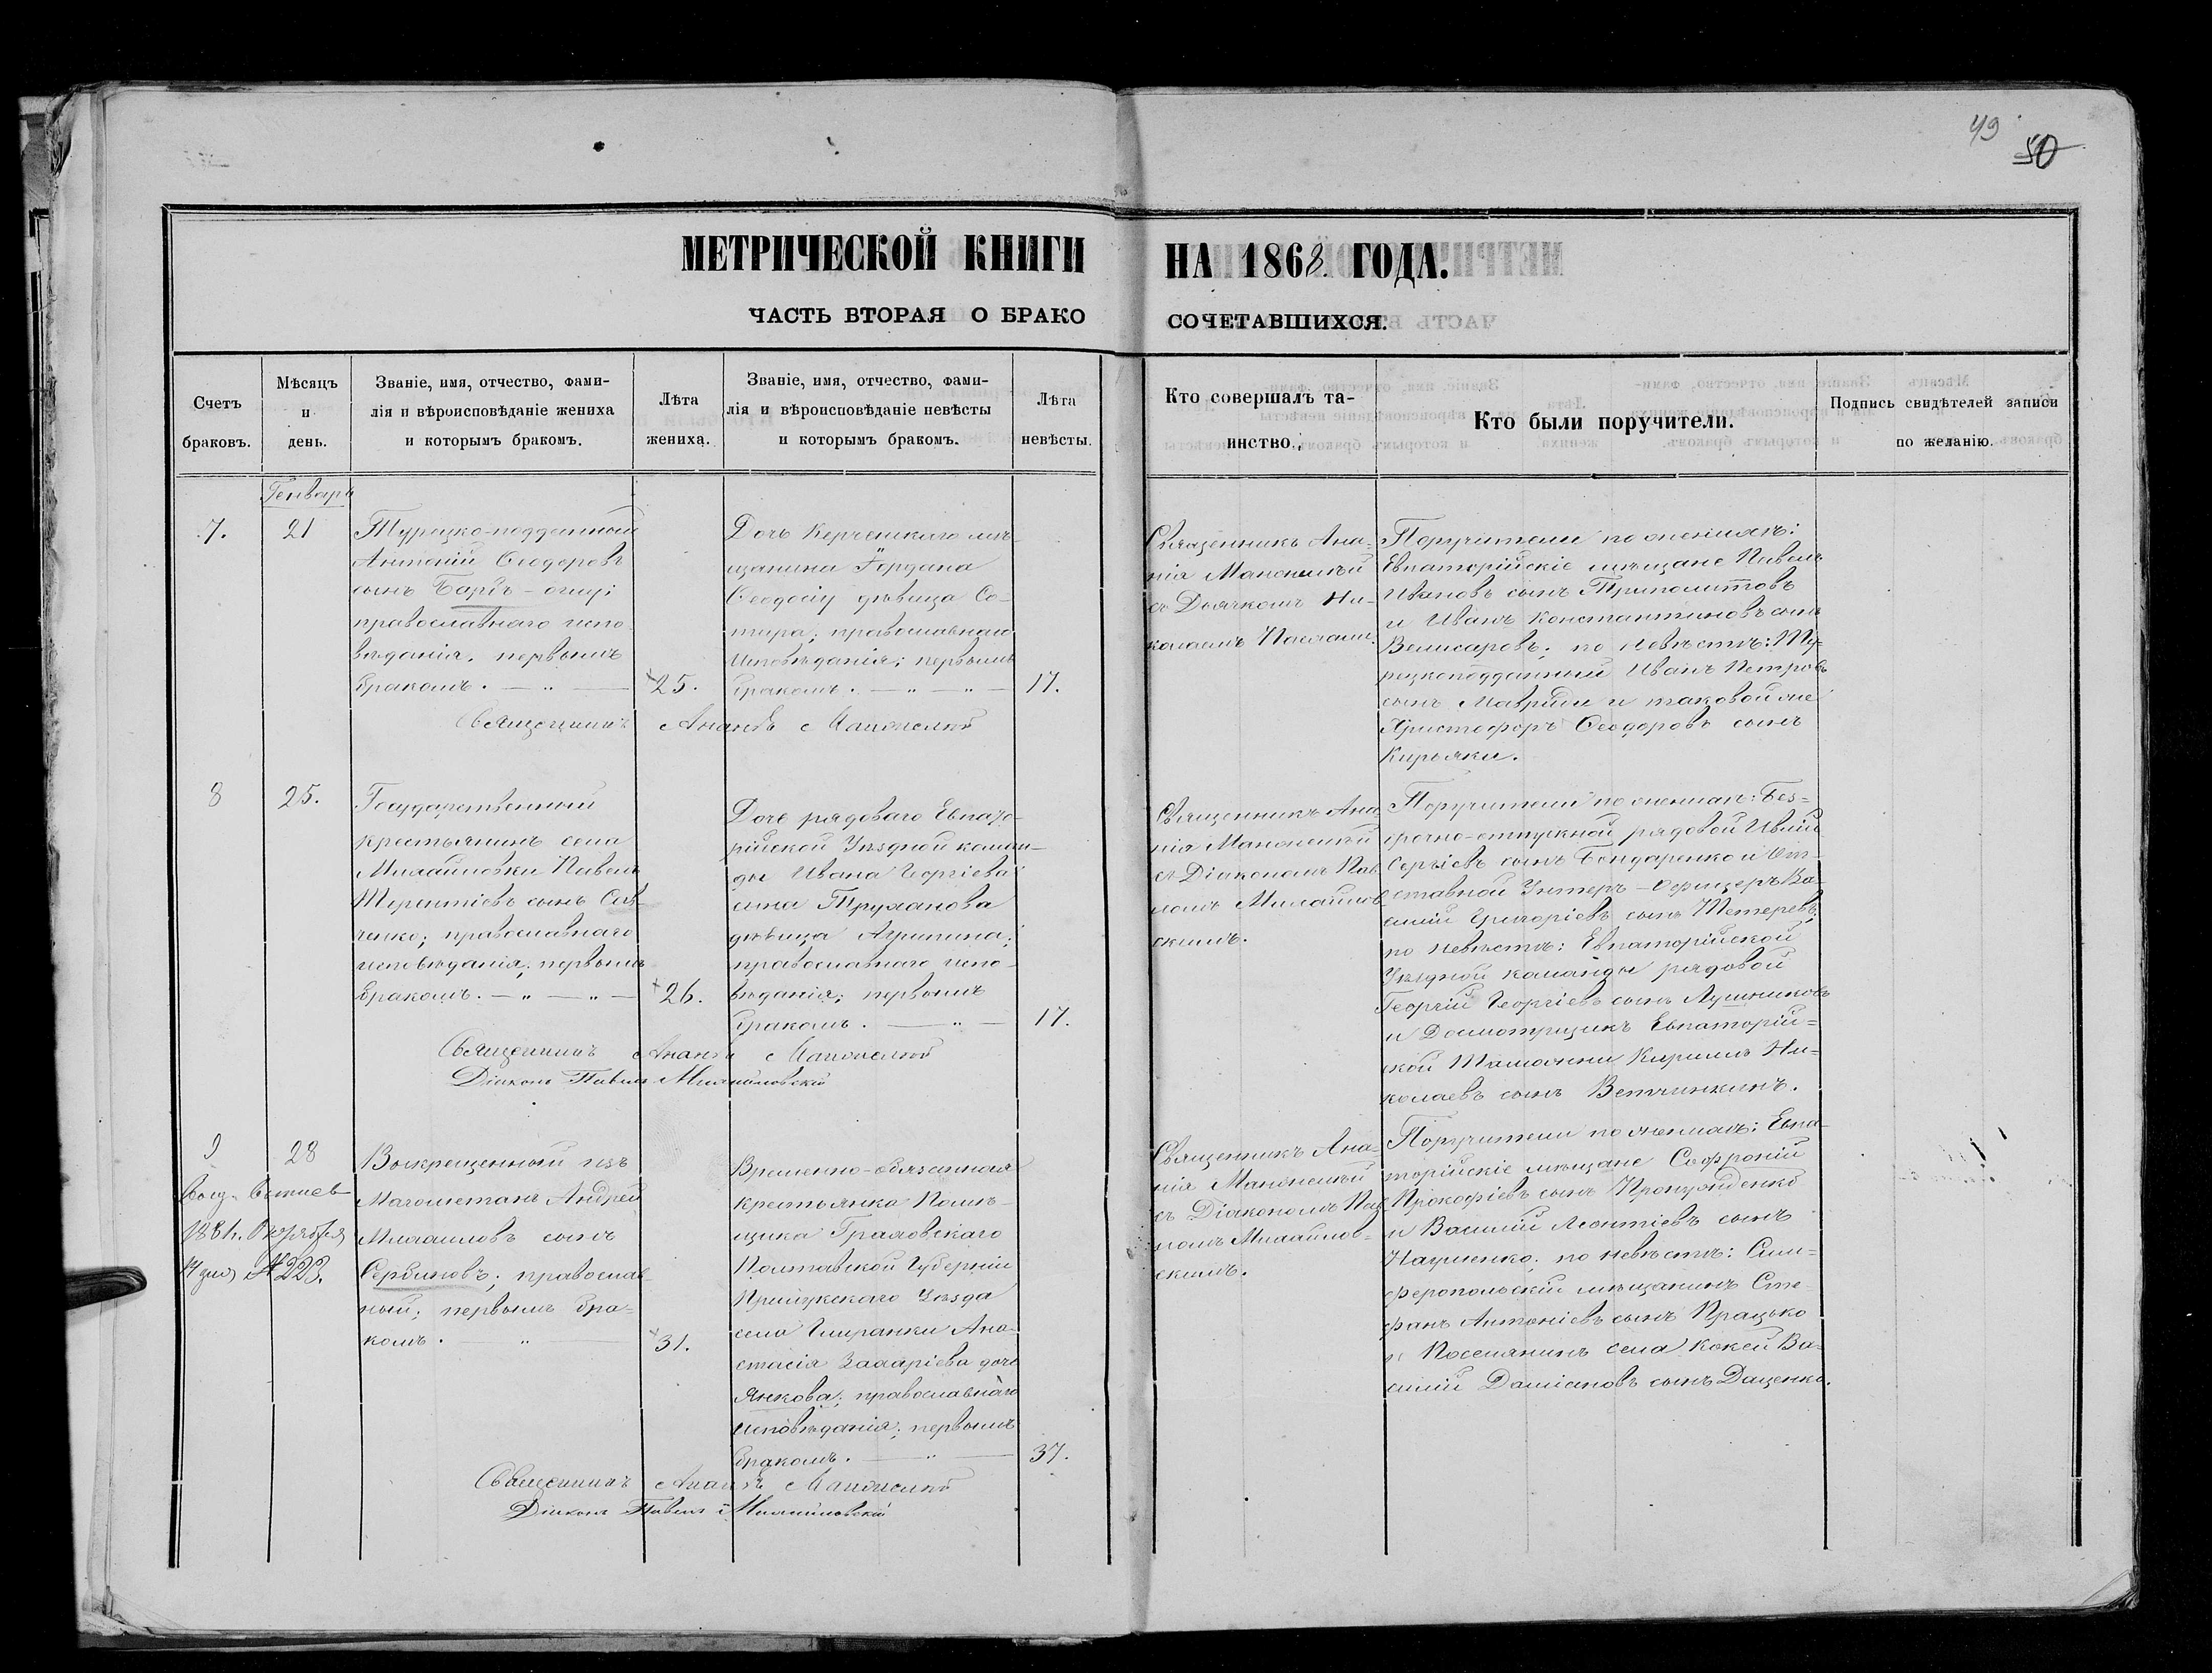 49
50
МЕТРИЧЕСКОЙ КНИГИ НА 1868 ГОДА.
ЧАСТЬ ВТОРАЯ О БРАКОСОЧЕТАВШИХСЯ.
Счетъ
браковъ.
Мѣсяцъ
и
день.
Званіе, имя, отчество, фами-
лія и вѣроисповѣданіе жениха
и которымъ бракомъ.
Лѣта
жениха.
Званіе, имя, отчество, фами-
лія и вѣроисповѣданіе невѣсты
и которымъ бракомъ.
Лѣта
невѣсты.
Кто совершалъ та-
инство.
Кто были поручители.
Подпись свидѣтелей записи
по желанію.
Генваря
7.
21
Турецко-подданный
Антоній Ѳеодоровъ
сынъ
православнаго испо-
вѣданія. первымъ
бракомъ.
25.
Дочь Керченскаго мѣ-
щанина Іордана
Ѳеодосіу дѣвица Со-
тира; православнаго
исповѣданія; первымъ
бракомъ.
17.
Священникъ Ана-
нія Маношкій
съ Дьячкомъ Ни-
колаемъ
Поручители по женихѣ:
Евпаторійскіе мѣщане Павелъ
Ивановъ сынъ Триполитовъ
и Иванъ Константиновъ сынъ
Велисаровъ; по невѣстѣ: Ту-
рецкоподданный Иванъ Петровъ
сынъ Мавриди и таковой же
Христофоръ Ѳеодоровъ сынъ
Кирьяки.
Священникъ Ананія
8
25.
Государственный
крестьянинъ села
Михайловки Павелъ
Терентіевъ сынъ Сав-
ченко; православнаго
исповѣданія; первымъ
бракомъ.
26.
Дочь рядоваго Евпато-
рійской Уѣздной коман-
ды Ивана Георгіева
сына Труханова
дѣвица Агрипина;
православнаго испо-
вѣданія; первымъ
бракомъ.
17.
Священникъ Ана-
нія
съ Діакономъ Пав-
ломъ Михайлов-
скимъ.
Поручители по женихѣ: Без-
срочно-отпускной рядовой
Сергіевъ сынъ Бондаренко и От-
ставной Унтеръ-Офицеръ Ва-
силій Григоріевъ сынъ Тетеревъ;
по невѣстѣ: Евпаторійской
Уѣздной команды рядовой
Георгій Георгіевъ сынъ Лушниковъ
и Досмотрщикъ Евпаторій-
ской Таможни Кириллъ Ни-
колаевъ сынъ Ветчинкинъ.
Священникъ Ананія
Діаконъ Павелъ Михайловскій
9
28
1881. Октября
14 дня № 223.
Воскрещенный изъ
Магометанъ Андрей
Михаиловъ сынъ
Сербиновъ; православ-
ный; первымъ бра-
комъ.
31.
Временно-обязанная
крестьянка Помѣ-
щика Граховскаго
Полтавской Губерніи
Прилукскаго Уѣзда
села Гмиранки Ана-
стасія Захаріева дочь
Янкова; православнаго
исповѣданія; первымъ
бракомъ.
37.
Священникъ Ана-
нія
съ Діакономъ Пав-
ломъ Михайлов-
скимъ.
Поручители по женихѣ: Евпа-
торійскіе мѣщане Софроній
Прокофіевъ сынъ
и Василій Леонтіевъ сынъ
Науменко; по невѣстѣ: Сим-
феропольскій мѣщанинъ Сте-
фанъ Антоніевъ сынъ Працько
и Поселянинъ села Кокей Ва-
силій Даміановъ сынъ Даценко.
Священникъ Ананія
Діаконъ Павелъ Михайловскій